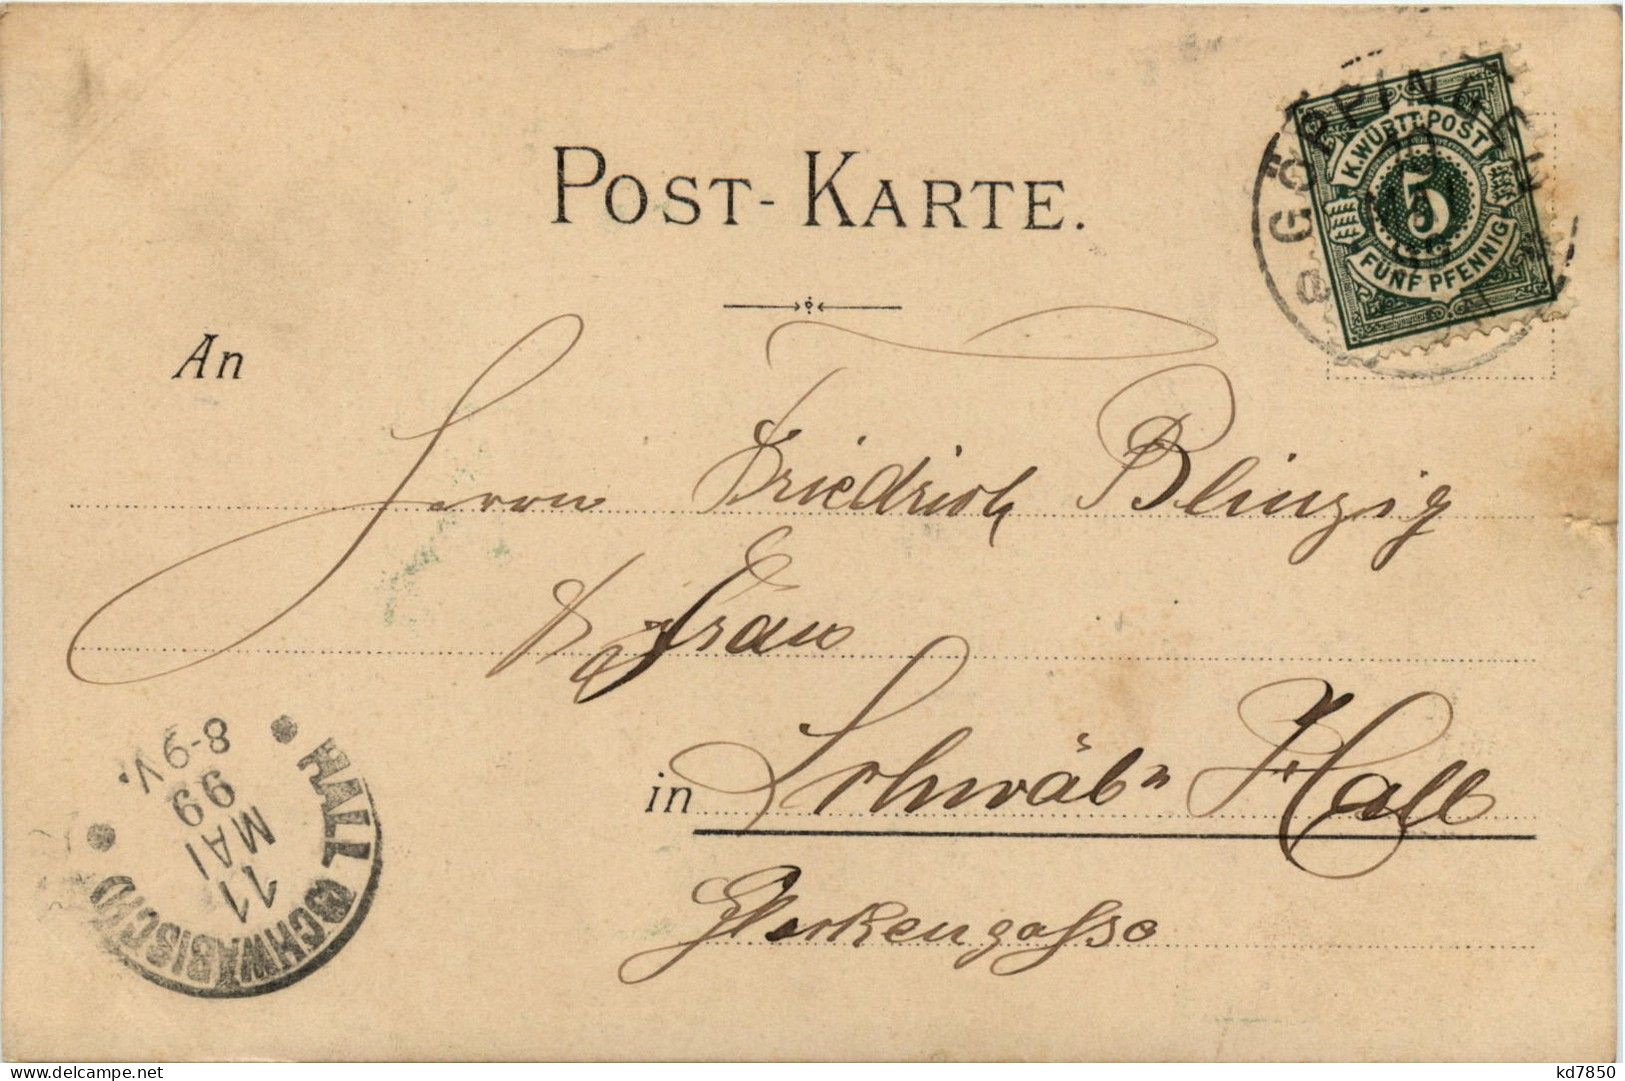 POST-KARTE.
GÖPPINGEN
K.WÜRTT.POST
5
FÜNF PFENNIG
An
Herrn Friedrich Blinzig
& Frau
in Schwäb. Hall
Glockengasse
HALL (SCHWÄBISCH)
11
MAI
99
8-9V.
kd7850